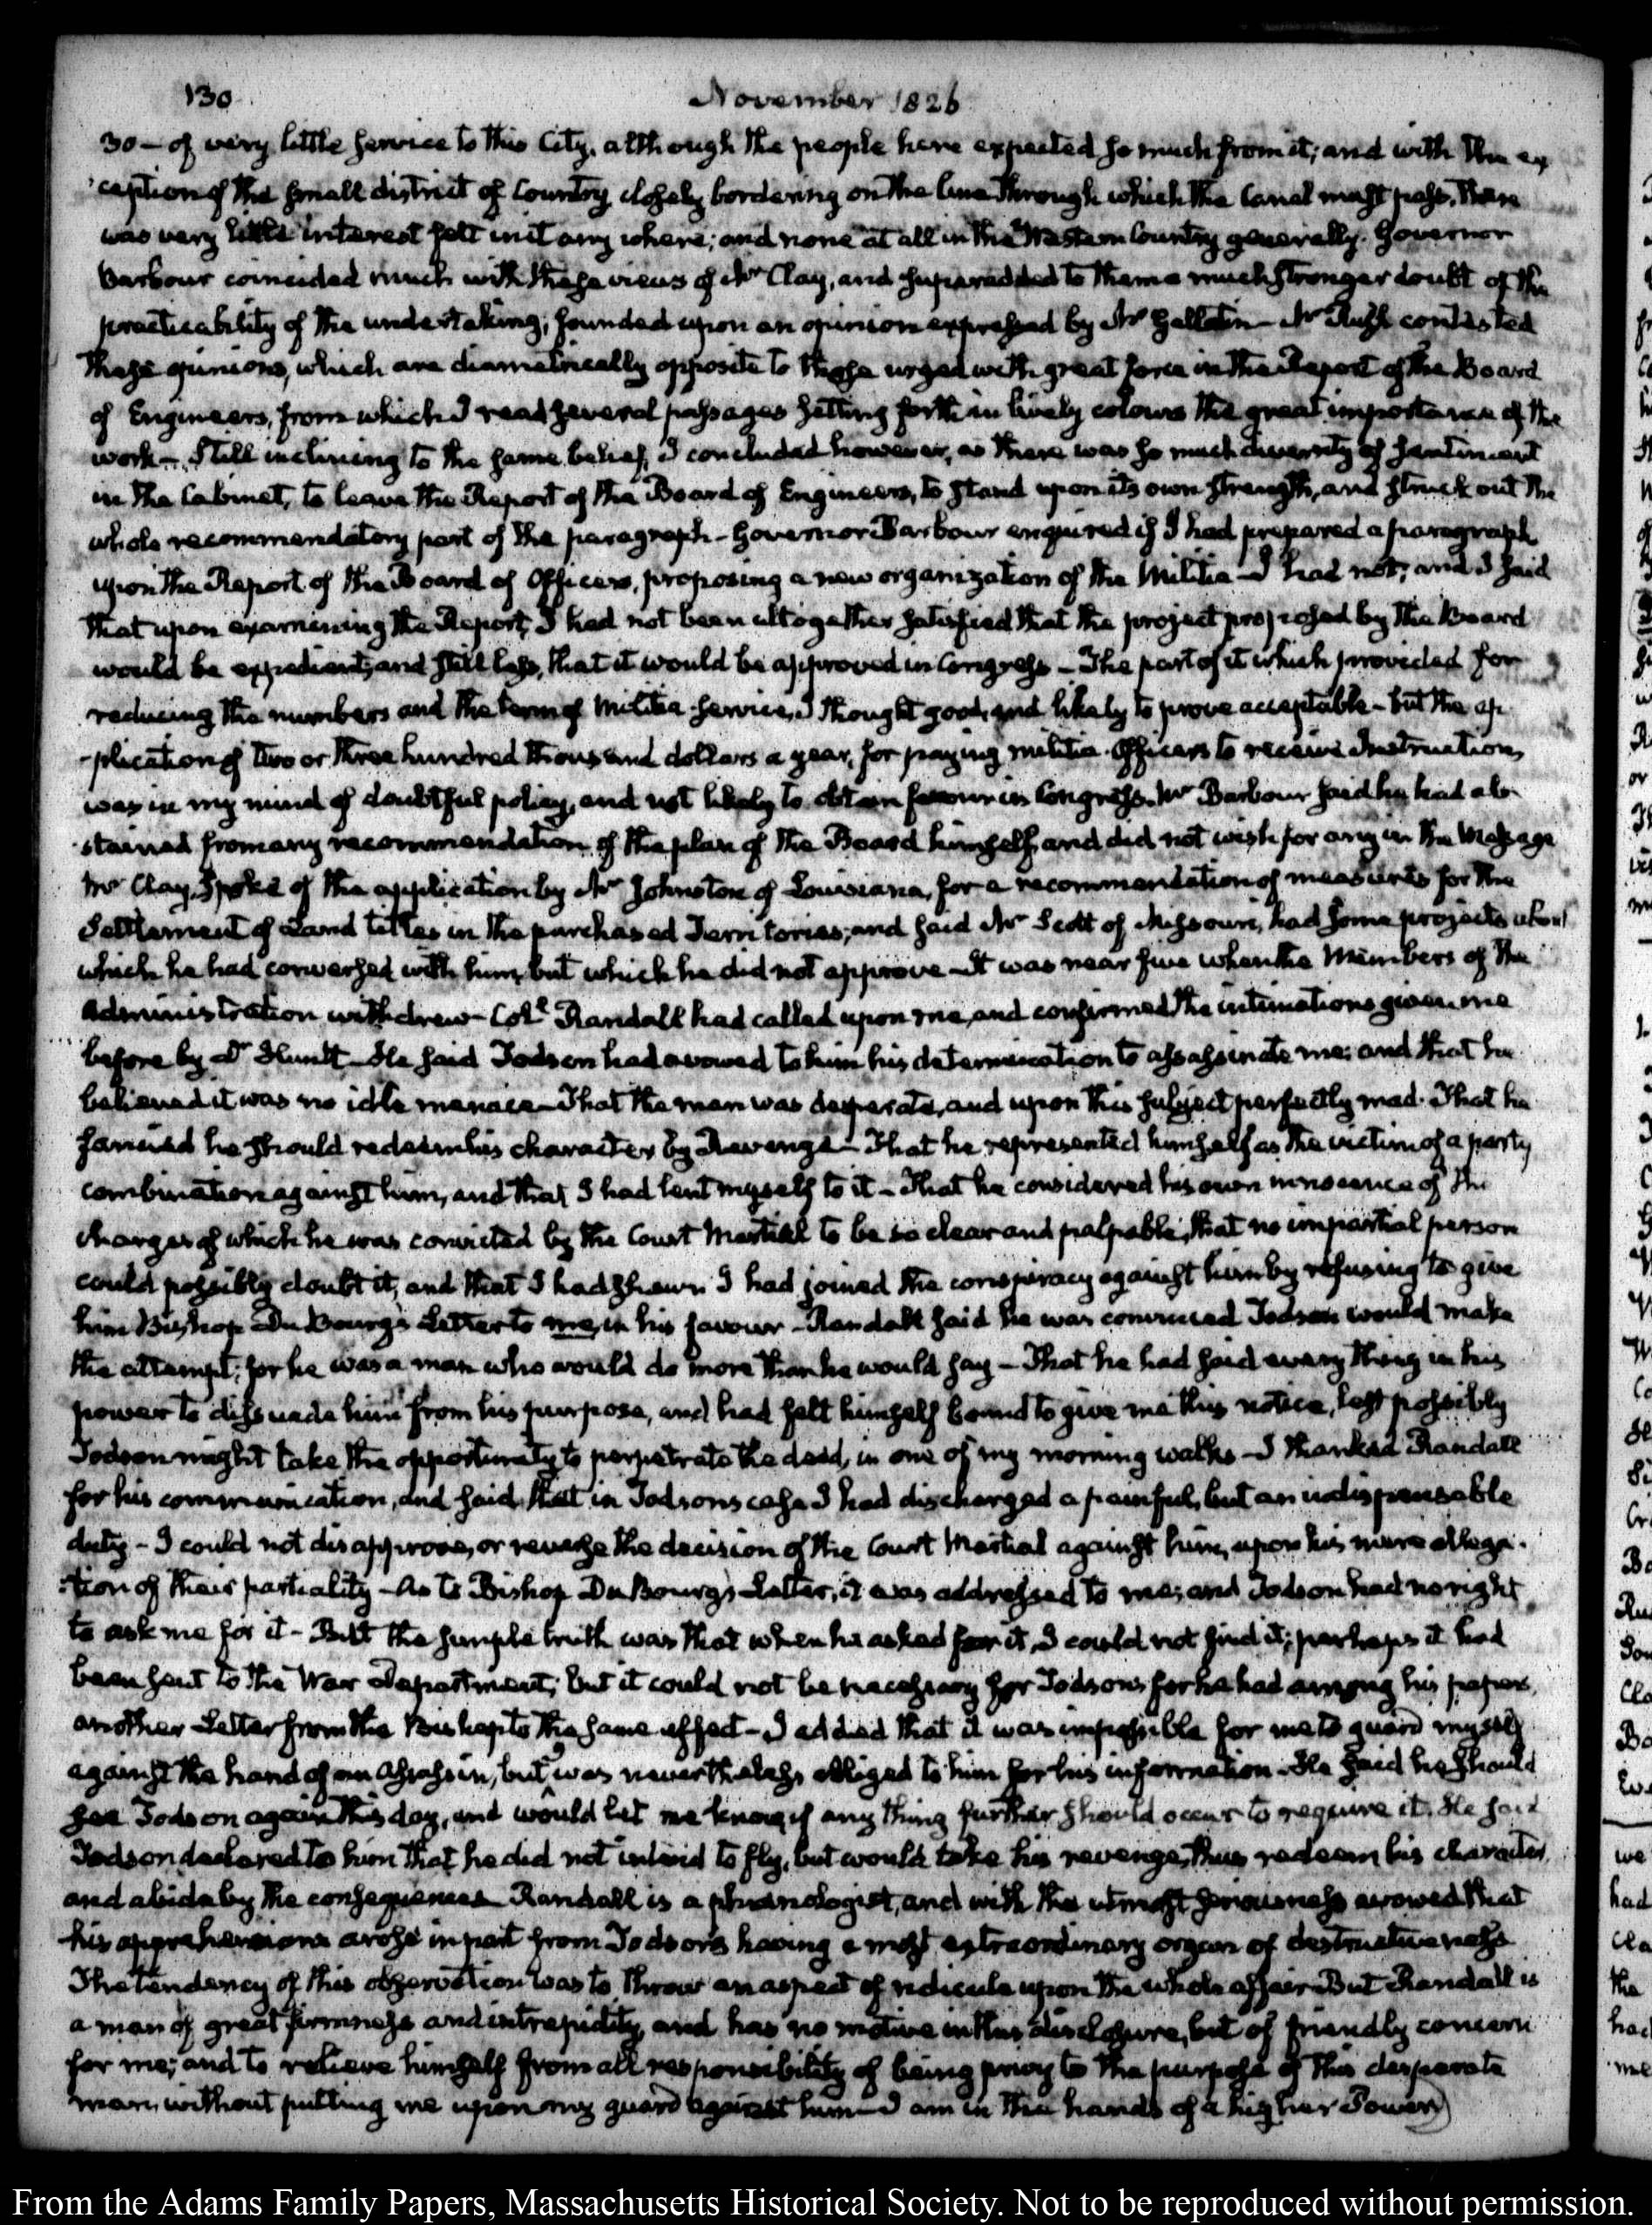 130
November 1826
30 – of very little service to this City, although the people here expected so much from it; and with the ex
ception of the small district of Country, closely bordering on the line through which the Canal must pass, there
was very little interest felt in it any where; and none at all in the Western Country generally. Governor
Barbour coincided much with these views of Mr Clay, and superadded to them a much stronger doubt of the
practicability of the undertaking, founded upon an opinion expressed by Mr Gallatin – Mr Rush contested
these opinions, which are diametrically opposite to those urged with great force in the Report of the Board
of Engineers, from which I read several passages setting forth in lively colours the great importance of the
work – Still inclining to the same belief, I concluded however, as there was so much diversity of sentiment
in the Cabinet, to leave the Report of the Board of Engineers, to stand upon its own strength, and struck out the
whole recommendatory part of the paragraph – Governor Barbour enquired if I had prepared a paragraph
upon the Report of the Board of Officers, proposing a new organization of the Militia – I had not; and I said
that upon examining the Report, I had not been altogether satisfied that the project proposed by the Board
would be expedient; and still less, that it would be approved in Congress – The part of it which provided for
reducing the numbers and the term of Militia service, I thought good, and likely to prove acceptable – but the ap
-plication of two or three hundred thousand dollars a year, for paying militia Officers to receive Instruction,
was in my mind of doubtful policy, and not likely to obtain favour in Congress. Mr Barbour said he had ab-
stained from any recommendation of the plan of the Board himself, and did not wish for any in the Message
Mr Clay, spoke of the application by Mr Johnston of Louisiana, for a recommendation of measures for the
Settlement of Land titles in the purchased Territories; and said Mr Scott of Missouri, had some projects about
which he had conversed with him, but which he did not approve – It was near five when the Members of the
Administration withdrew – Coll Randall had called upon me, and confirmed the intimations given me
before by Dr Huntt – He said Jodson had avowed to him his determination to assassinate me; and that he
believed it was no idle menace – That the man was desperate, and upon this subject perfectly mad. That he
fancied he should redeem his character by Revenge – That he represented himself as the victim of a party
combination against him, and that I had lent myself to it – That he considered his own innocence of the
charges of which he was convicted by the Court Martial to be so clear and palpable, that no impartial person
could possibly doubt it, and that I had shewn I had joined the conspiracy against him by refusing to give
him Bishop Du Bourg's Letter to me, in his favour – Randall said he was convinced Jodson would make
the attempt; for he was a man who would do more than he would say – That he had said every thing in his
power to dissuade him from his purpose, and had felt himself bound to give me this notice, lest possibly
Jodson might take the opportunity to perpetrate the deed, in one of my morning walks – I thanked Randall
for his communication, and said that in Jodsons case I had discharged a painful, but an indispensable
duty – I could not disapprove, or reverse the decision of the Court Martial against him, upon his mere allega-
-tion of their partiality – As to Bishop DuBourg's Letter, it was addressed to me; and Jodson had no right
to ask me for it – But the simple truth was that when he asked for it, I could not find it; perhaps it had
been sent to the War Department; but it could not be necessary for Jodson, for he had among his papers,
another Letter from the Bishop to the same effect – I added that it was impossible for me to guard myself
against the hand of an assassin, but was nevertheless obliged to him for his information – He said he should
see Jodson again this day, and would let me know if any thing further should occur to require it. He said
Jodson declared to him that he did not intend to fly, but would take his revenge, thus redeem his character,
and abide by the consequences – Randall is a phrenologist, and with the utmost seriousness avowed that
his apprehensions arose in part from Jodson's having a most extraordinary organ of destructiveness
The tendency of this observation was to throw an aspect of ridicule upon the whole affair – But Randall is
a man of great firmness and intrepidity, and has no motive in this disclosure, but of friendly concern
for me; and to relieve himself from all responsibility of being privy to the purpose of this desperate
man, without putting me upon my guard against him – I am in the hands of a higher Power)
From the Adams Family Papers, Massachusetts Historical Society. Not to be reproduced without permission.